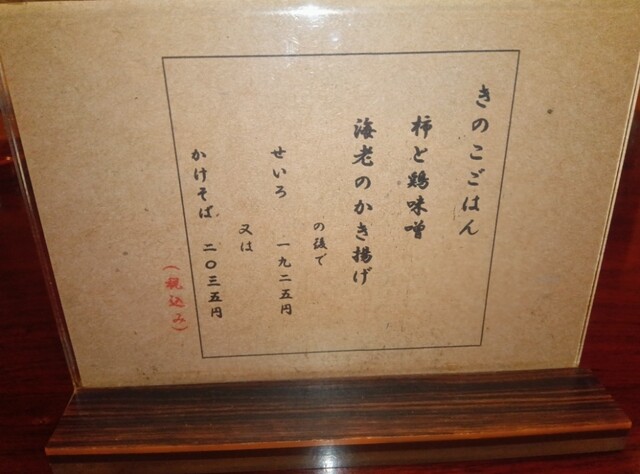 きのこごはん
柿と鶏味噌
海老のかき揚げ
の後で
せいろ 一九二五円
又は
かけそば 二〇三五円
(税込み)